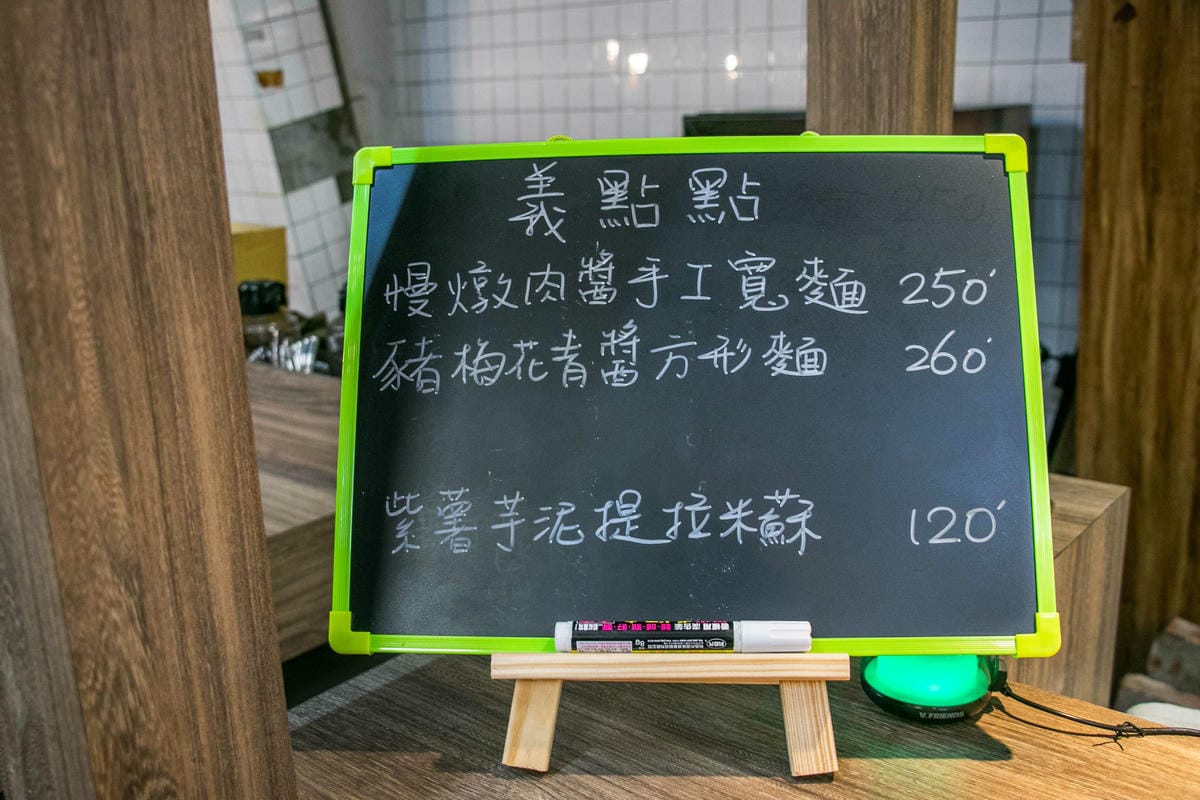 義點點
慢燉肉醬手工寬麵 250
豬梅花青醬方形麵 260
紫薯芋泥提拉米蘇 120
V.FRIENDS